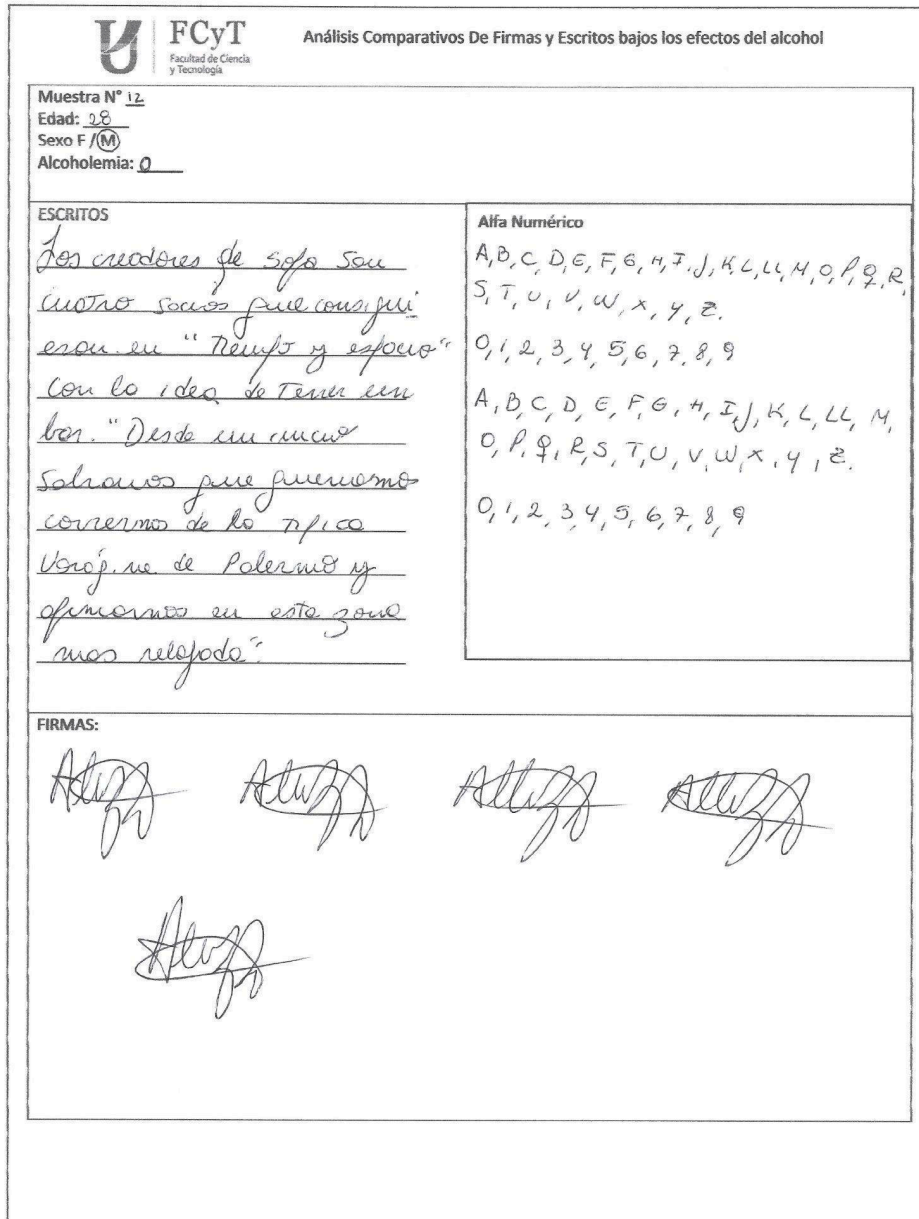 FCyT
Facultad de Ciencia
y Tecnología
Análisis Comparativos De Firmas y Escritos bajos los efectos del alcohol
Muestra N° 12
Edad: 28
Sexo F / M
Alcoholemia: 0
ESCRITOS
Los creadores de sofa son
cuatro socios que consigui
eron en "Tiempo y espacio"
con la idea de Tener un
bar. "Desde un inicio
Sabiamos que queriamos
corrernos de la tipica
Vorágine de Palermo y
afincarnos en esta zona
mas relajada".
Alfa Numérico
A, B, C, D, E, F, G, H, I, J, K, L, LL, M, O, P, Q, R,
S, T, U, V, W, X, Y, Z.
0, 1, 2, 3, 4, 5, 6, 7, 8, 9
A, B, C, D, E, F, G, H, I, J, K, L, LL, M,
O, P, Q, R, S, T, U, V, W, X, Y, Z.
0, 1, 2, 3, 4, 5, 6, 7, 8, 9
FIRMAS: